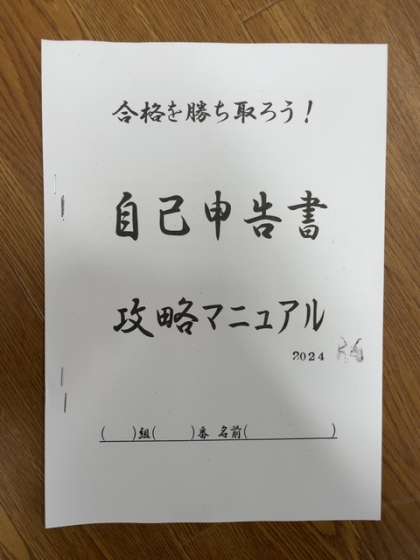 合格を勝ち取ろう!
自己申告書
攻略マニュアル
2024
(　　)組(　　)番 名前(　　　　　　)